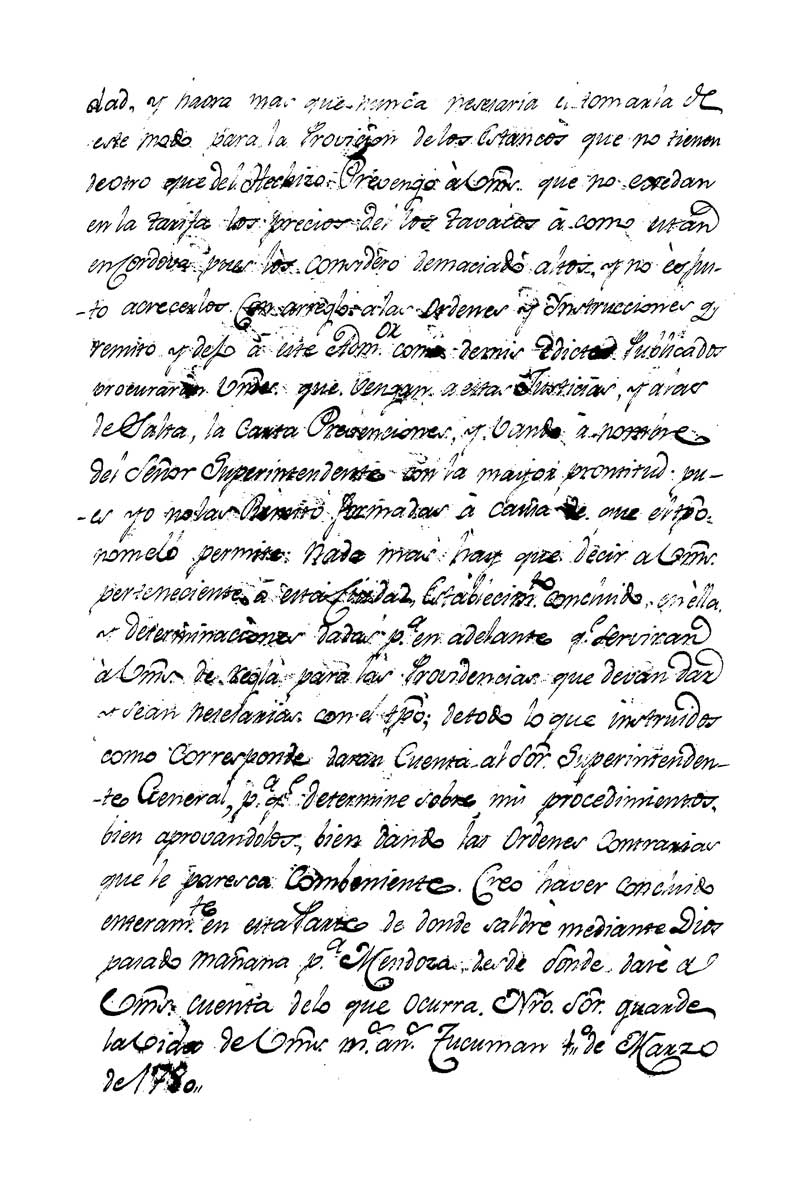 dad, y haora mas que nunca nesesaria el tomarla de
este modo para la Provicion delos Estancos que no tienen
de otro que del Hechizo. Prevengo à Vms. que no exedan
en la tarifa los precios del los tavacos à como estan
en Cordova pues los considero demaciado altos, y no es jus-
-to acrecerlos. Con arreglo alas Ordenes y Instrucciones q
remito y dejo à este Adm.or como demis Edictos Publicados
procuraràn Vmds. que vengan a estas Justicias, y aras
de Salta, la Carta Prevenciones, y Vando à nombre
del Señor Superintendente con la mayor prontitud pu-
-es yo nolas Remito firmadas à causa de que el tpo.
nomelo permite. Nada mas hay que decir a Vms.
perteneciente à esta Ciudad, Establecim.to concluido, en ella
y determinaciones dadas p.a en adelante q.e serviran
à Vms. de regla para las Providencias que devan dar
y sean nesesarias con el tpo; detodo lo que instruidos
como Corresponde daran Cuenta al Sor. Superintenden-
-te General, p.a q.e determine sobre mis procedimientos,
bien aprovandolos, bien dando las Ordenes Contrarias
que le paresca Combeniente. Creo haver concluido
enteram.te en esta Parte de donde saldrè mediante Dios
pasado mañana p.a Mendoza, desde donde darè a
Vms. cuenta delo que ocurra. Nrô. Sôr. guarde
la Vida de Vms. m.s an.s Tucuman 1,,o de Marzo
de 1780,,